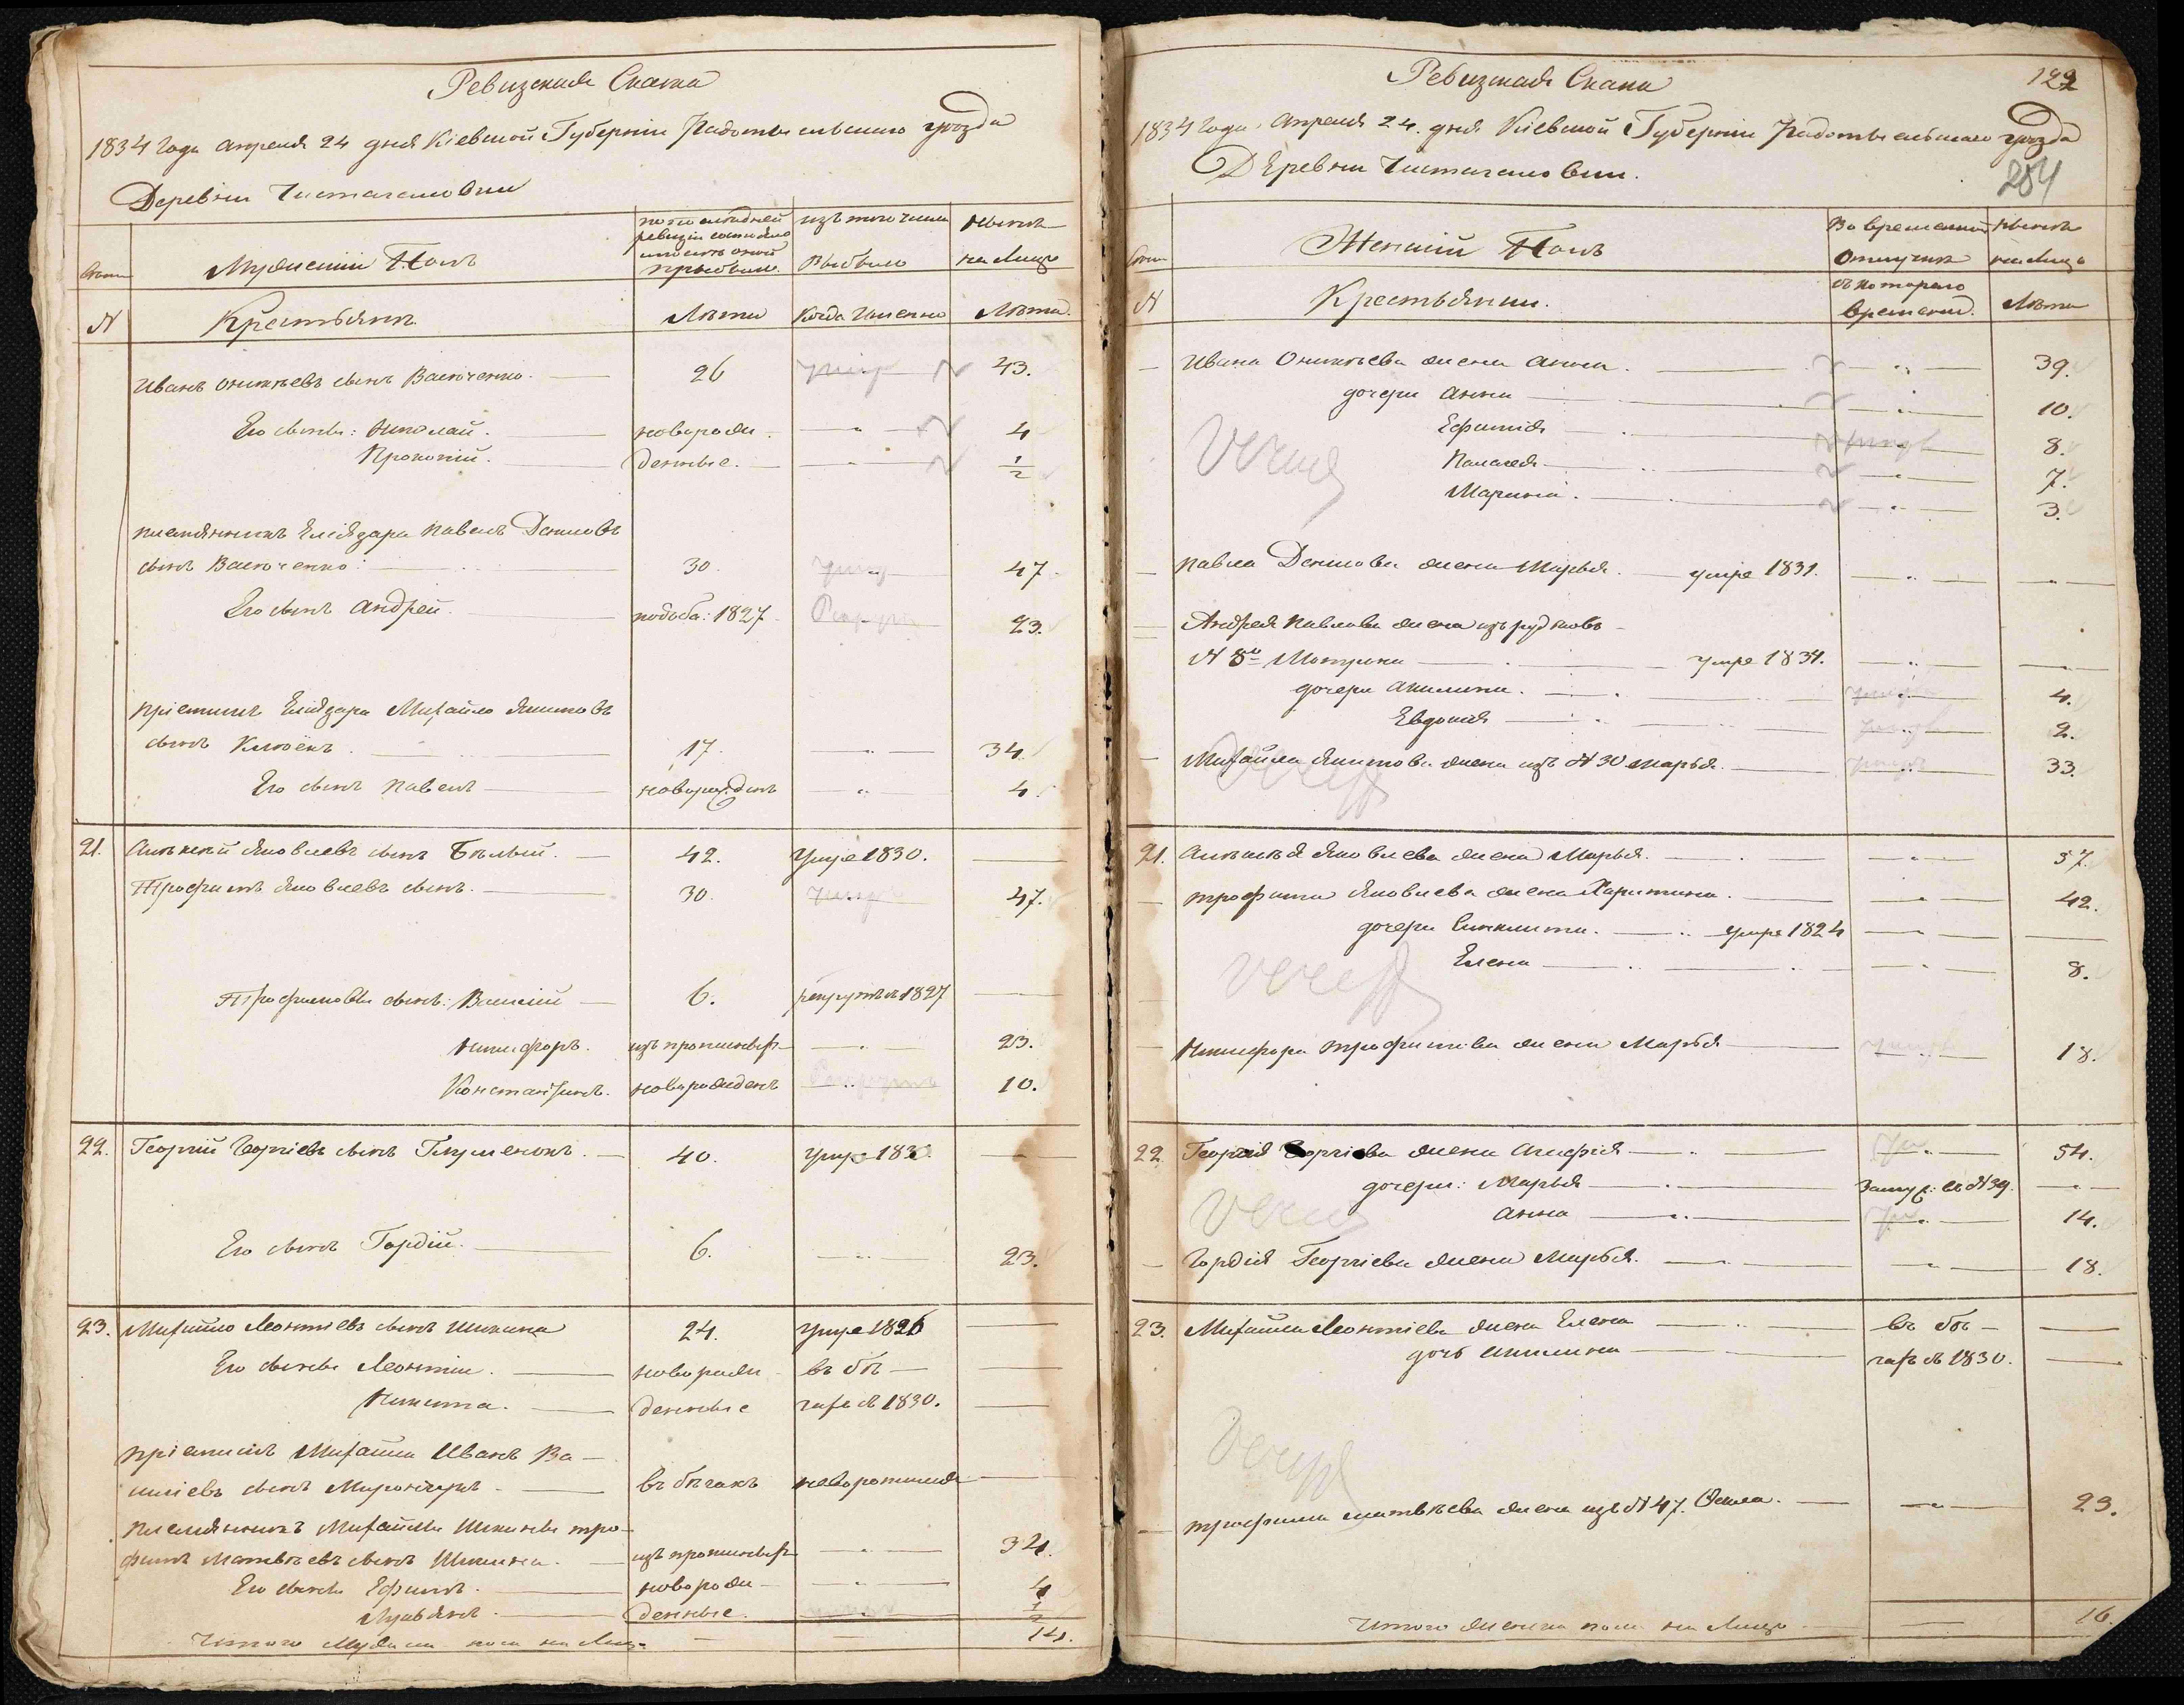 Ревизская Сказка
1834 Года апреля 24 дня Кіевской Губерніи Радомысльскаго уезда
Деревни Чистагаловки
по последней
ревизіи состояло
и после оной
прибыло.
изъ того числа
выбыло
Ныне
на лицо
Мужескій Полъ
N
Крестьяне
Лета
Когда именно
Лета.
Иванъ Оникиевъ сынъ Васюченко. 26 43.
Его сыны: Николай. новорож 4
Прокопій. денные. 1/2
племянникъ Еліазара Павелъ Денисовъ
сынъ Васюченко 30. 47.
Его сынъ Андрей. 1827 23.
пріемышъ Еліазара Михайло Якимовъ
сынъ 17. 34.
Его сынъ Павелъ новорожденъ 4
21. Алексей Яковлевъ сынъ Белый. 42. умре 1830.
Трофимъ Яковлевъ сынъ. 30. 47.
Трофимовы сыны: Василій 6. рекрутъ 1827
Никифоръ. изъ прописныхъ 23.
Константинъ. новорожденъ 10.
22. Георгій Георгіевъ сынъ 40. умре 1830.
Его сынъ Гордій. 6. 23.
23. Михайло Леонтіевъ сынъ Шикина 24. умре 1826
Его сыны Леонтій. новорож въ бе
Никита. денные гахъ съ 1830.
пріемышъ Михайлы Иванъ Ва
силіевъ сынъ въ бегахъ неворотился
племянникъ Михайлы Шикины Тро
фимъ Матвеевъ сынъ Шикина. изъ прописныхъ 34.
Его сыны Ефимъ. новорож 4
Лукьянъ. денные. 1/2
Итого Мужеска пола на лицо 14.
Ревизская Сказка 122
1834 Года Апреля 24. дня Кіевской Губерніи Радомысльскаго уезда
Деревни Чистагаловки. 204
Женскій Полъ
Во временной
отлучке
Ныне
на лицо
N
Крестьянки.
съ котораго
времени.
Лета
Ивана Оникиева жена Анна. 39.
дочери Анна 10.
Ефимія 8.
Палагея 7.
Марина. 3.
Павла Денисова жена Марья. умре 1831.
Андрея Павлова жена изъ рудковъ
N 8го Мотрона умре 1834.
дочери Акилина. 4.
Евдокія 2.
Михайла Якимова жена изъ N 30 Марья 33.
21. Алексея Яковлева жена Марья. 57.
Трофима Яковлева жена Харитина. 42.
дочери Синклита. умре 1824
Елена 8.
Никифора Трофимова жена Марья 18.
22. Георгія Георгіева жена Агафія 54.
дочери: Марья замуж: въ N 39.
Анна 14.
Гордія Георгіева жена Марья. 18.
23. Михайла Леонтіева жена Елена въ бе
дочь Акилина гахъ съ 1830.
Трофима Матвеева жена изъ N 47. 23.
Итого женска пола на лицо 16.